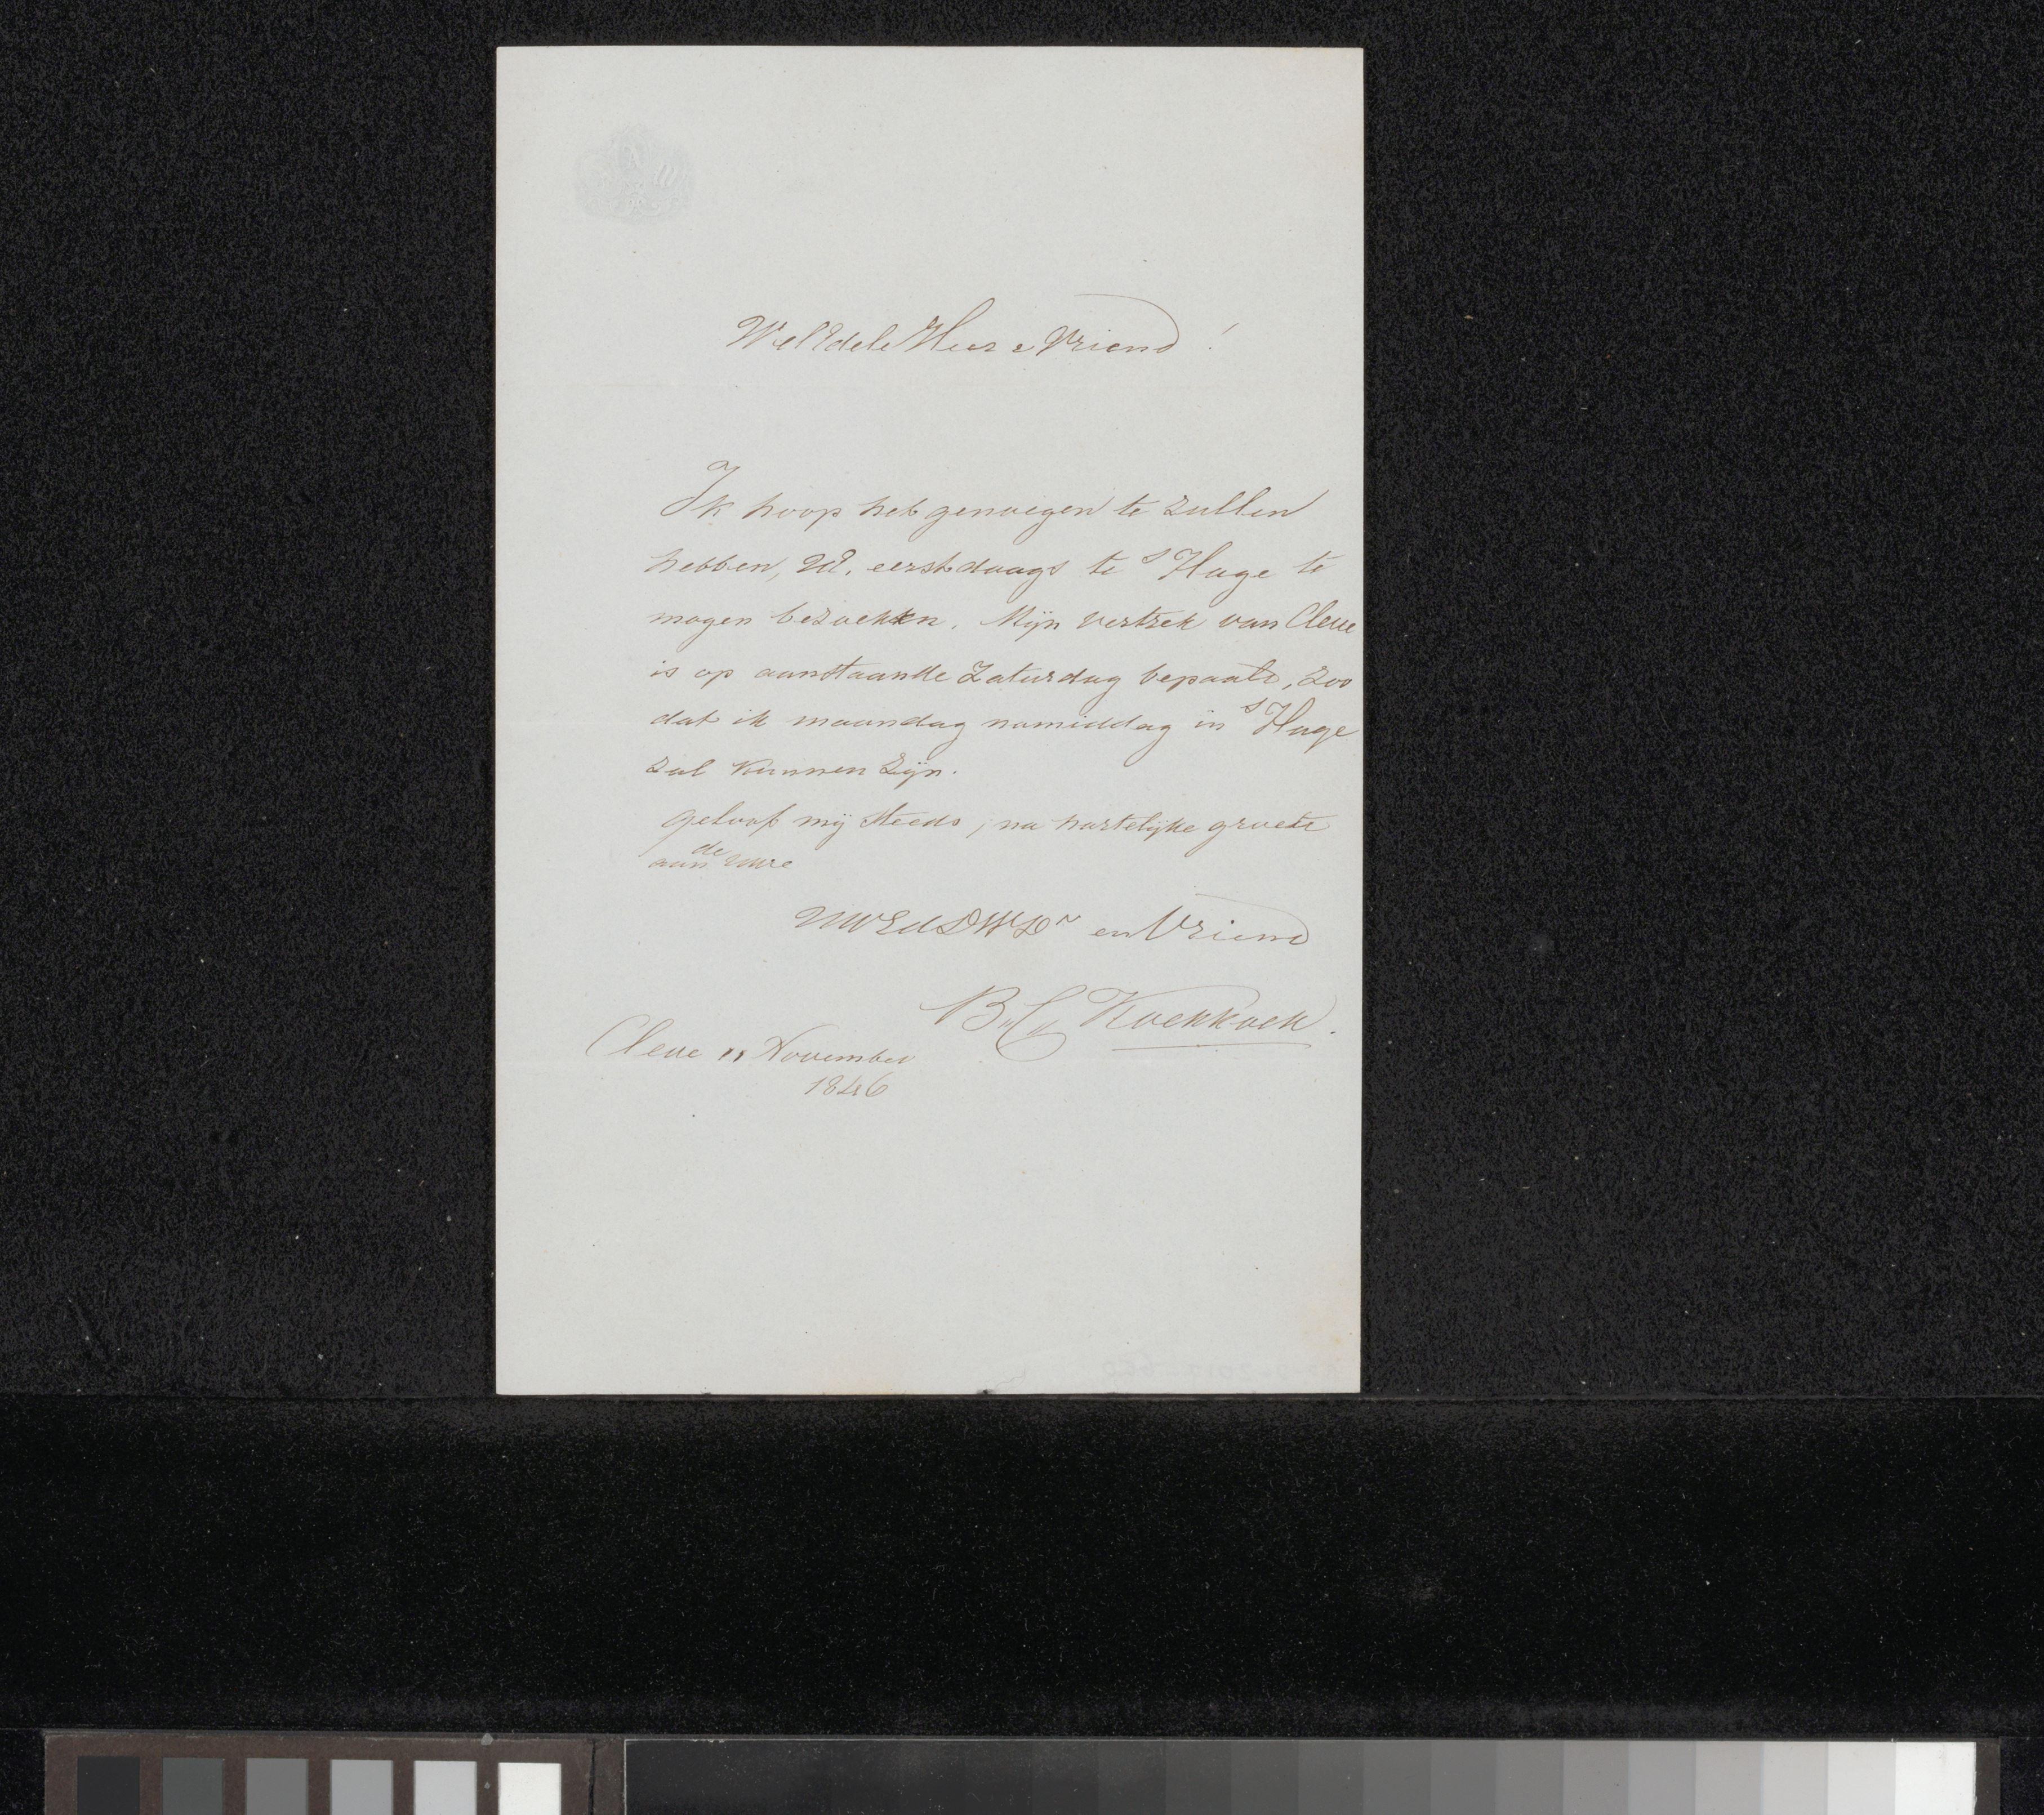 WelEdele Heer & Vriend!
Ik hoop het genoegen te zullen
hebben, UE. eerstdaags te s'Hage te
mogen bezoeken. Mijn vertrek van Cleve
is op aanstaande Zaturdag bepaald, zoo
dat ik maandag namiddag in s'Hage
zal kunnen zijn.
geloof mij steeds, na hartelijke groete
aan de Uwe
UWEdDWDr en Vriend
B. C. Koekkoek.
Cleve 11 November
1846